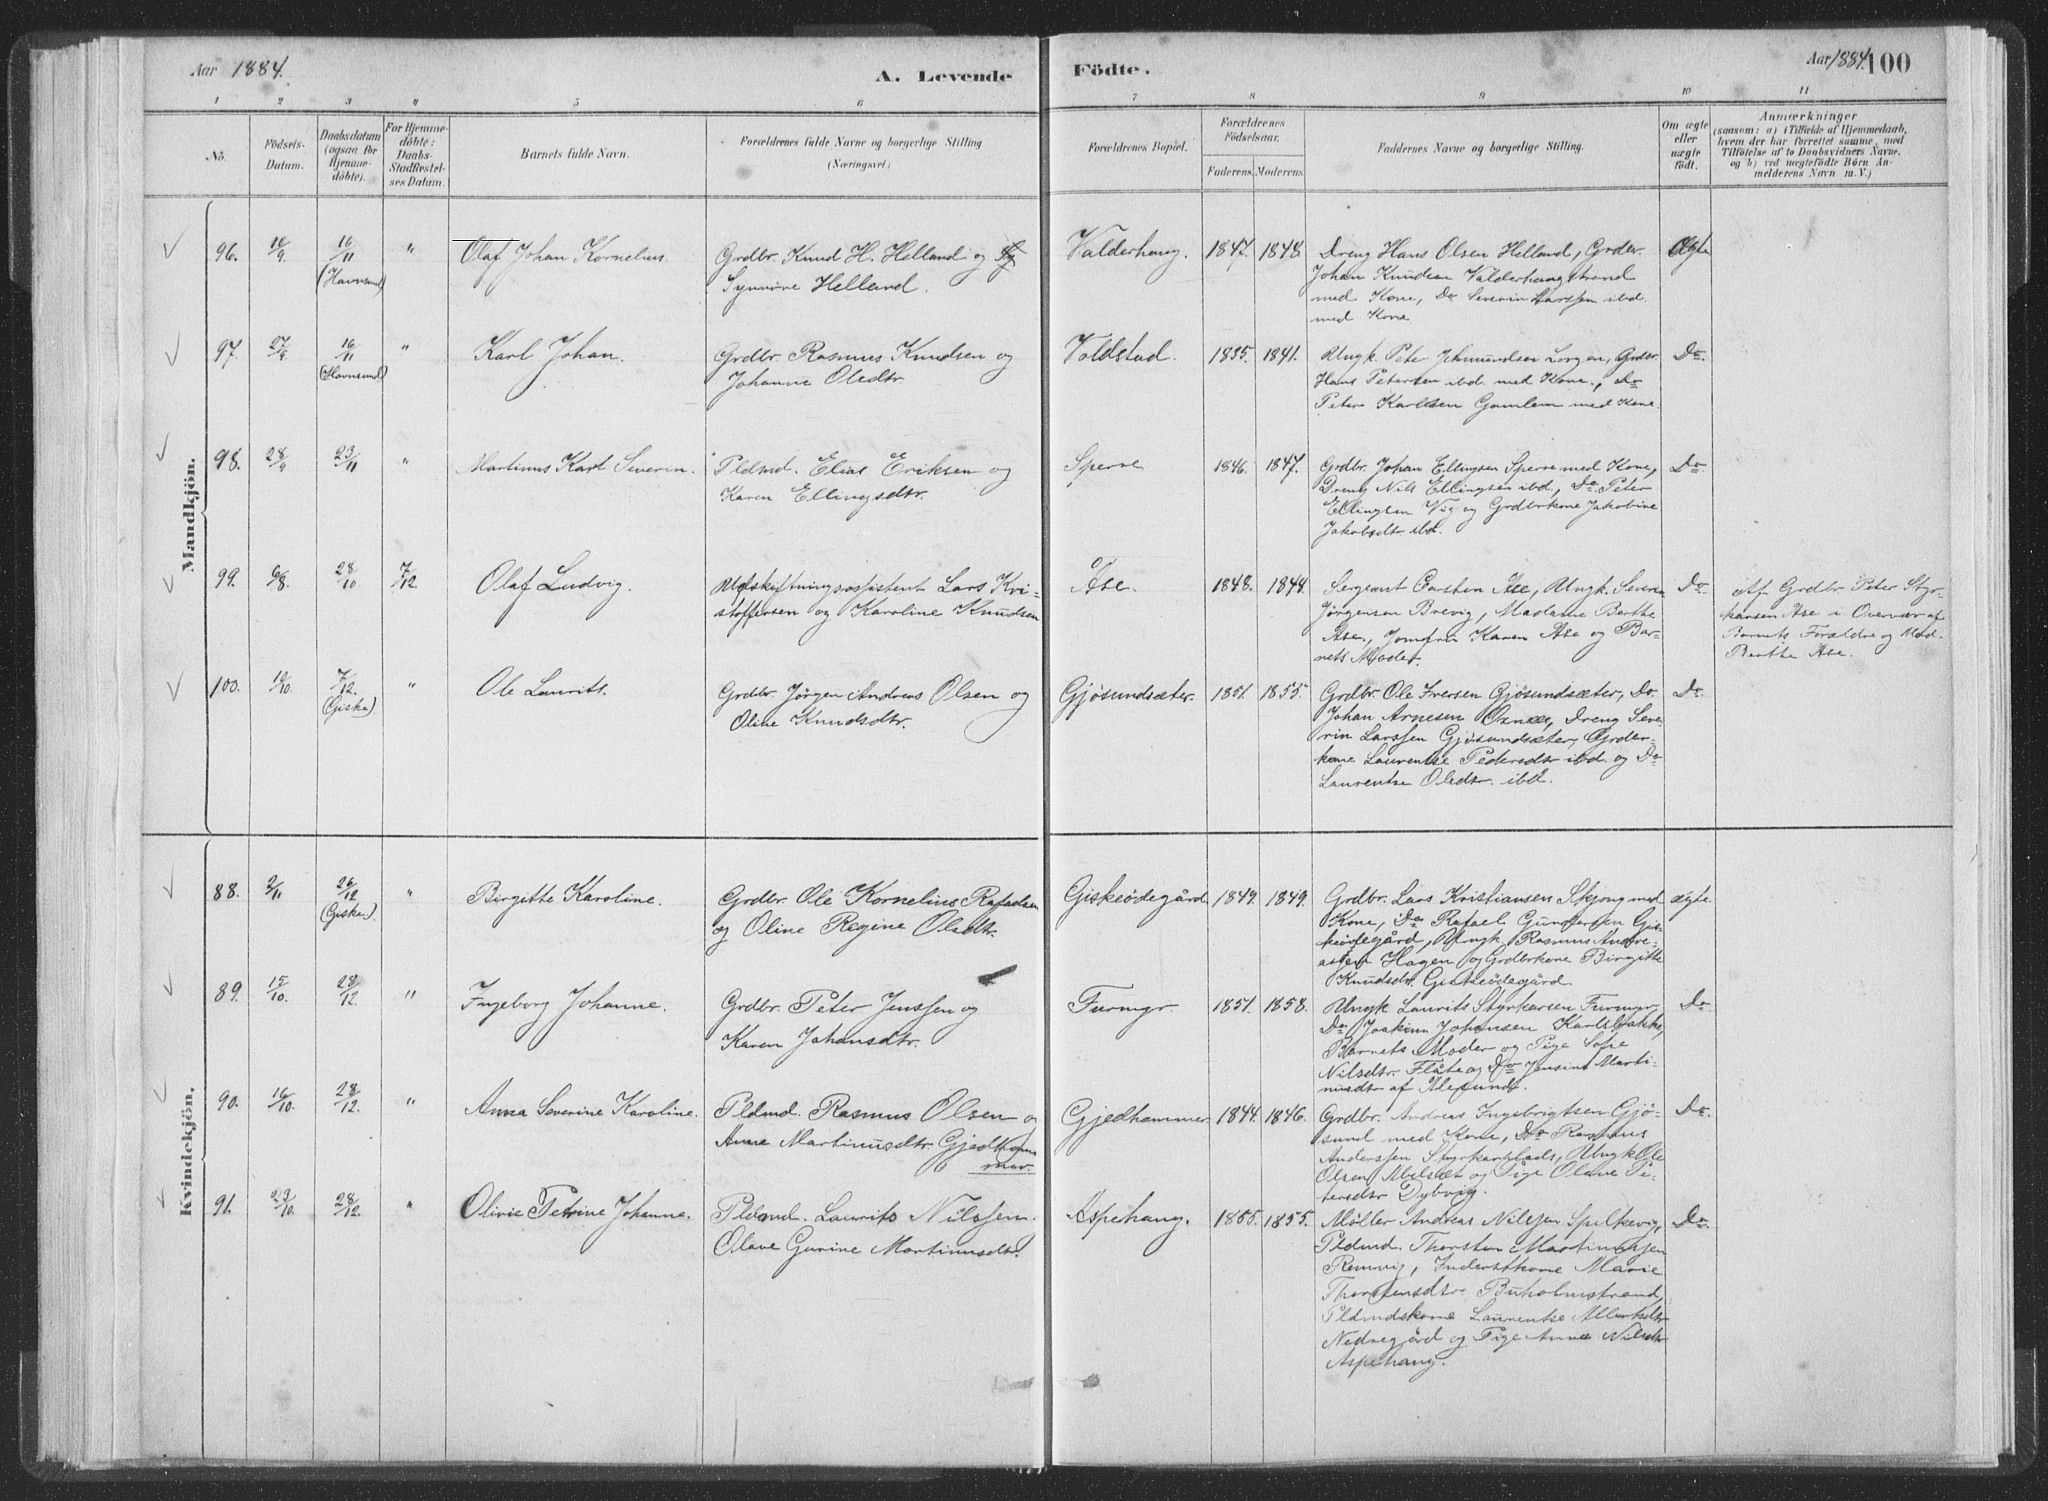 Aar 1884.
A. Levende
Födte.
Aar 1884.
100
1 2 3 4 5 6 7 8 9 10 11
No.
Födsels-
Datum.
Daabsdatum
(ogsaa for
Hjemme-
döbte).
For Hjemme-
döbte:
Daabs-
Stadfæstel-
ses Datum.
Barnets fulde Navn.
Forældrenes fulde Navne og borgerlige Stilling
(Næringsvei.)
Forældrenes Bopæl.
Forældrenes
Födselsaar.
Faderens. Moderens.
Faddernes Navne og borgerlige Stilling.
Om ægte
eller
uægte
födt.
Anmærkninger
(saasom: a) i Tilfælde af Hjemmedaab,
hvem der har forrettet samme, med
Tilföielse af to Daabsvidners Navne,
og b) ved uægtefödte Börn An-
melderens Navn m. V.)
Mandkjön.
96. 10/9 16/11 (Havnsund) " Olaf Johan Kornelius. Grdbr. Knud H. Helland og
Synnöve Helland.
Valderhaug. 1847. 1848. Dreng Hans Olsen Helland, Grdbr. Ægte
Johan Knudsen Valderhaugstrand
med Kone, Do Severin Larssen ibd.
med Kone
97. 27/9 16/11 (Havnsund) " Karl Johan. Grdbr. Rasmus Knudsen og
Johanne Olsdtr.
Voldstad. 1835. 1841. Ungk. Peter Jetmundsen Longen, Grdbr. Do.
Hans Petersen ibd. med Kone, Do
Peter Karlsen Gamlem med Kone.
98. 28/9 23/11 " Martinus Karl Severin. Pldmd. Elias Eriksen og
Karen Ellingsdtr.
Sperre 1846. 1847. Grdbr. Johan Ellingsen Sperre med Kone, Do
Dreng Nils Ellingsen ibd., Do. Peter
Ellingsen Vig og Grdbrkone Jakobine
Jakobsdtr ibd.
99. 6/8. 28/10 7/12. Olaf Ludvig. Udskiftningsassistent Lars Kri-
stoffersen og Karoline Knudsen
Åse. 1848. 1848. Sergeant Carsten Åse, Ungk. Severin Do
Jörgensen Brevig, Madame Berthe
Åse, Jomfru Karen Åse og Bar-
nets Moder.
Af Grdbr Peter Styr-
karsen Åse i Overvær af
Barnets Forældre og Mad.
Berthe Åse.
100. 10/10. 7/12. (Giske) " Ole Laurits. Grdbr. Jörgen Andreas Olsen og
Oline Knudsdtr.
Gjösundsæter. 1851. 1855. Grdbr Ole Iversen Gjösundsæter, Do. Do.
Johan Arnesen Oxnes, Dreng Seve-
rin Larssen Gjösundsæter, Grdbr-
kone Laurentse Pedersdtr ibd. og Do
Laurentse Olsdtr. ibd.
Kvindekjön.
88. 2/11 26/12 (Giske). " Birgitte Karoline. Grdbr. Ole Kornelius Rafaelsen
og Oline Regine Olsdtr.
Giskeödegård 1849. 1849. Grdbr. Lars Kristiansen Skjong med ægte.
Kone, Do Rafael Gundersen Gis-
keödegård, Ungk. Rasmus Andre-
assen Hagen og Grdbrkone Birgitte
Knudsdtr. Giskeödegård.
89. 15/10. 28/12. " Ingeborg Johanne. Grdbr. Peter Jenssen og
Karen Johansdtr.
Furmyr. 1851. 1858. Ungk Laurits Styrkarsen Furmyr, Do
Do Joakim Johansen Karlsbakke,
Barnets Moder og Pige Sofie
Nilsdtr. Flåte og Do Jensine Marti-
nusdtr af Ålesund.
90. 16/10. 28/12. " Anna Severine Karoline. Pldmd. Rasmus Olsen og
Anne Martinusdtr. Gjedham
mer.
Gjedhammer 1844. 1846. Grdbr. Andreas Ingebrigtsen Gjö- Do.
sund med Kone, Do Rasmus
Anderssen Styrkarplads, Ungk Ole
Olsen Abelsæt og Pige Olave Pe-
tersdtr Dybvig.
91. 23/10. 28/12. " Olivie Petrine Johanne. Pldmd. Laurits Nilssen.
Olave Gurine Martinusdtr.
Aspehaug. 1855. 1855. Möller Andreas Nilssen Spilkevig, Do.
Pldmd. Thorsten Martinussen
Remvig, Inderstkone Marie
Thorstensdtr Buholmstrand,
Pldmdskone Laurentse Albertsdtr
Nedregård og Pige Anne Nilsdtr
Aspehaug.